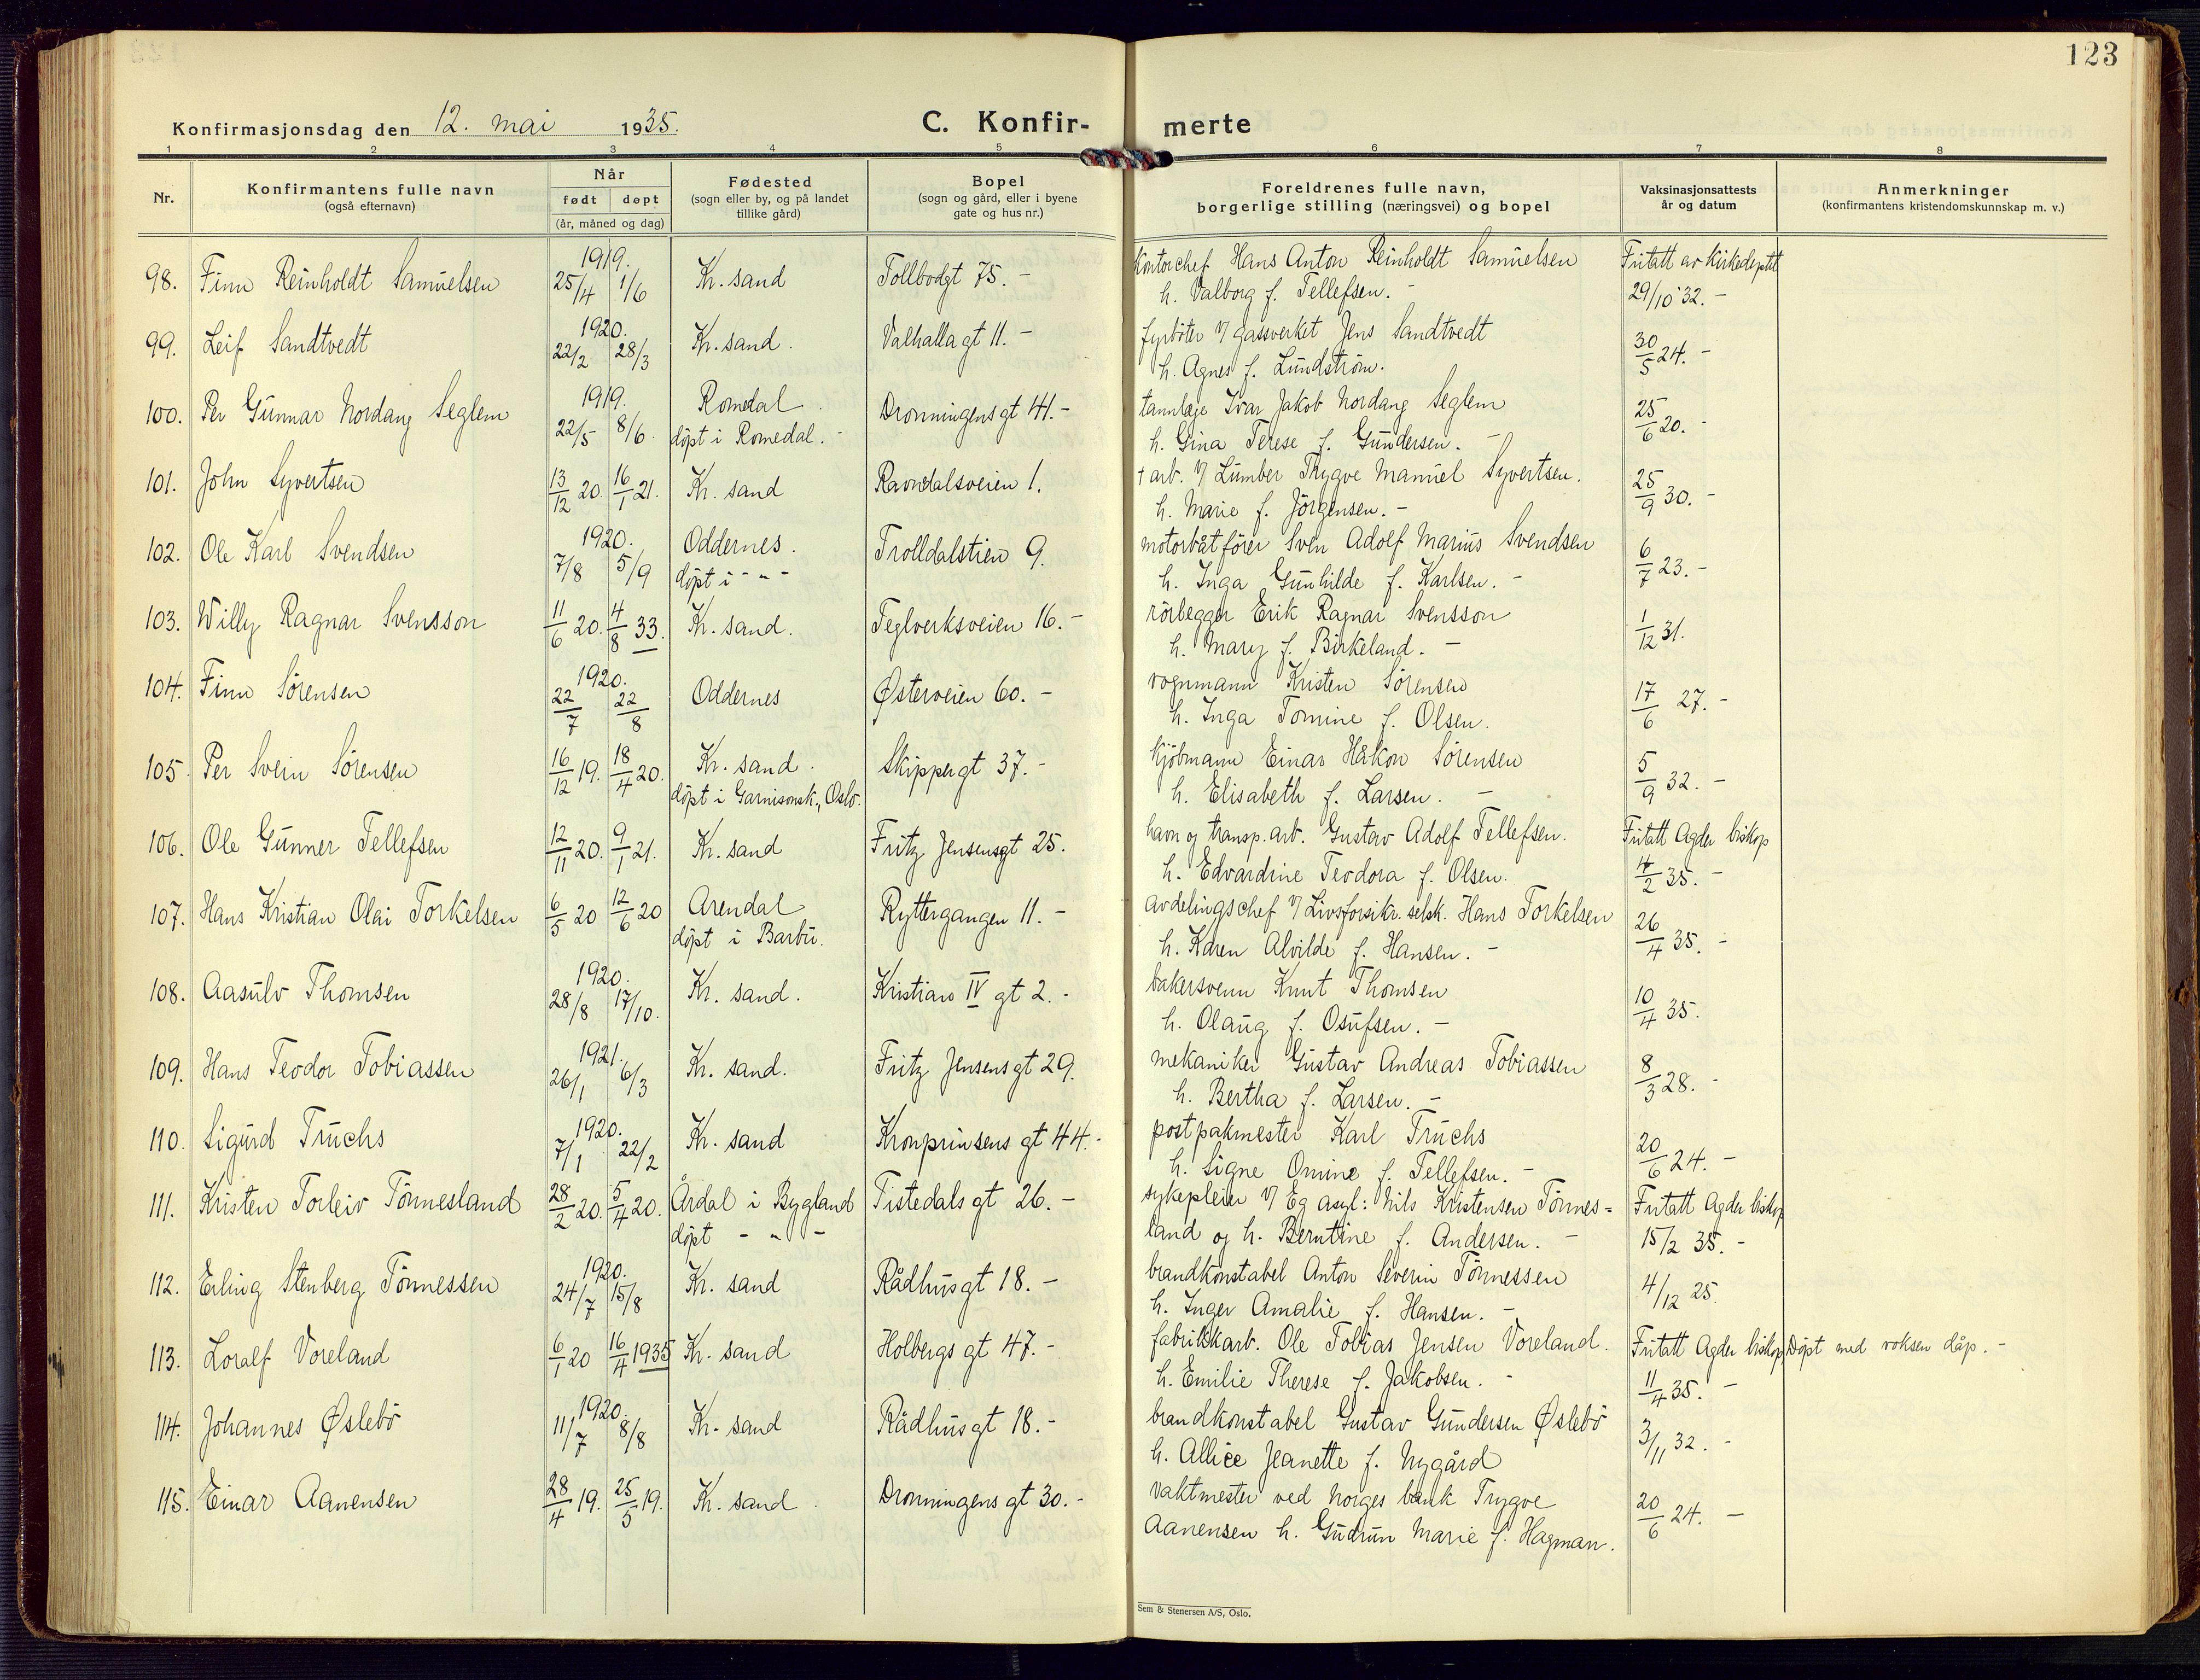 123
Konfirmasjonsdag den 12. mai 1935. C. Konfir- merte
1 2 3 4 5 6 7 8
Nr. Konfirmantens fulle navn (også efternavn) Når født døpt (år, måned og dag) Fødested (sogn eller by, og på landet tillike gård) Bopel (sogn og gård, eller i byene gate og hus nr.) Foreldrenes fulle navn, borgerlige stilling (næringsvei) og bopel Vaksinasjonsattests år og datum Anmerkninger (konfirmantens kristendomskunnskap m. v.)
98. Finn Reinholdt Samuelsen 1919. 25/4 1/6 Kr. sand Tollbodgt 75. - Kontorchef Hans Anton Reinholdt Samuelsen Fritatt av Kirkedeptet
h. Valborg f. Tellefsen. - 29/10 '32. -
99. Leif Sandtvedt 1920. 22/2 28/3 Kr. sand. Valhallagt 11. - fyrbøter v/ gassverket Jens Sandtvedt
h. Agnes f. Lundstrøm. 30/5 24. -
100. Per Gunnar Nordang Seglem 1919. 22/5 8/6. Romedal Dronningensgt 41. - tannlæge Ivar Jakob Nordang Seglem
døpt i Romedal. - h. Gina Terese f. Gundersen. - 25/6 20. -
101. John Syvertsen 13/12 20. 16/1 21. Kr. sand Ravnedalsveien 1. + arb. v/ Lumber Thygve Manuel Syvertsen.
h. Marie f. Jörgensen. - 25/9 30. -
102. Ole Karl Svendsen 1920. 7/8 5/9 Oddernes. Trolldalstien 9. motorbåtförer Sven Adolf Marius Svendsen
døpt i - " - h. Inga Gunhilde f. Karlsen. - 6/7 23. -
103. Willy Ragnar Svensson 11/6 20. 4/8 33. Kr. sand. Teglverksveien 16. - rörlegger Erik Ragnar Svensson
h. Mary f. Birkeland. - 1/12 31.
104. Finn Sörensen 1920. 22/7 22/8 Oddernes Østerveien 60. - vognmann Kristen Sörensen
h. Inga Tomine f. Olsen. 17/6 27. -
105. Per Svein Sörensen 16/12 19. 18/4 20. Kr. sand. Skippergt 37. - kjöbmann Einar Håkon Sörensen
døpt i Garnisonsk., Oslo. h. Elisabeth f. Larsen. - 5/9 32. -
106. Ole Gunner Tellefsen 12/11 20. 9/1 21. Kr. sand Fritz Jensensgt 25. havn og transp. arb. Gustav Adolf Tellefsen. Fritatt Agder biskop
h. Edvardine Teodora f. Olsen. 4/2 35. -
107. Hans Kristian Olai Torkelsen 6/5 20 12/6 20 Arendal Ryttergangen 11. - avdelingschef v/ Livsforsikr. selsk. Hans Torkelsen
døpt i Barbu. h. Karen Alvilde f. Hansen. - 26/4 35. -
108. Aasulv Thomsen 1920. 28/8 17/10. Kr. sand. Kristians IV gt 2. - bakersvenn Knut Thomsen
h. Olaug f. Osufsen. - 10/4 35.
109. Hans Teodor Tobiassen 1921. 26/1 6/3 Kr. sand. Fritz Jensensgt 29. mekaniker Gustav Andreas Tobiassen
h. Bertha f. Larsen. - 8/3 28. -
110. Sigurd Truchs 1920. 7/1 22/2 Kr. sand Kronprinsens gt 44. - postpakmester Karl Truchs
h. Signe Omine f. Tellefsen. - 20/6 24. -
111. Kristen Torleiv Tönnesland 28/2 20. 5/4 20. Årdal i Bygland Tistedals gt 26. - sykepleier v/ Eg asyl: Nils Kristensen Tönnes= Fritatt Agder biskop
døpt - " - land og h. Berntine f. Andersen. - 15/2 35. -
112. Erling Stenberg Tönnessen 1920. 24/7 15/8 Kr. sand Rådhusgt 18. - brandkonstabel Anton Severin Tönnessen
h. Inger Amalie f. Hansen. - 4/12 25.
113. Loralf Voreland 6/1 20 16/4 1935 Kr. sand Holbergs gt 47. - fabrikkarb. Ole Tobias Jensen Voreland. Fritatt Agder biskop Døpt med voksen dåp. -
h. Emilie Therese f. Jakobsen. - 11/4 35. -
114. Johannes Øslebö 1920. 11/7 8/8 Kr. sand Rådhusgt 18. - brandkonstabel Gustav Gundersen Øslebö
h. Allice Jeanette f. Nygård 3/11 32. -
115. Einar Aanensen 28/4 19. 25/5 19. Kr. sand. Dronningens gt 30. - vaktmester ved Norges bank Trygve
Aanensen h. Gudrun Marie f. Hagman. 20/6 24. -
Sem & Stenersen A/S, Oslo.